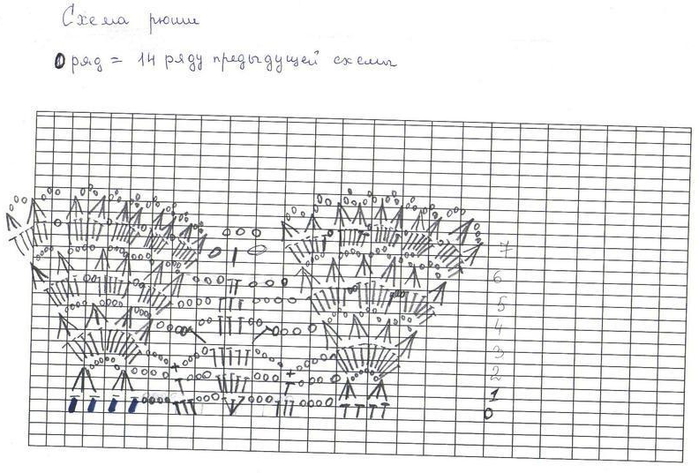 Схема рюши
0 ряд = 14 ряду предыдущей схемы
7
6
5
4
3
2
1
0